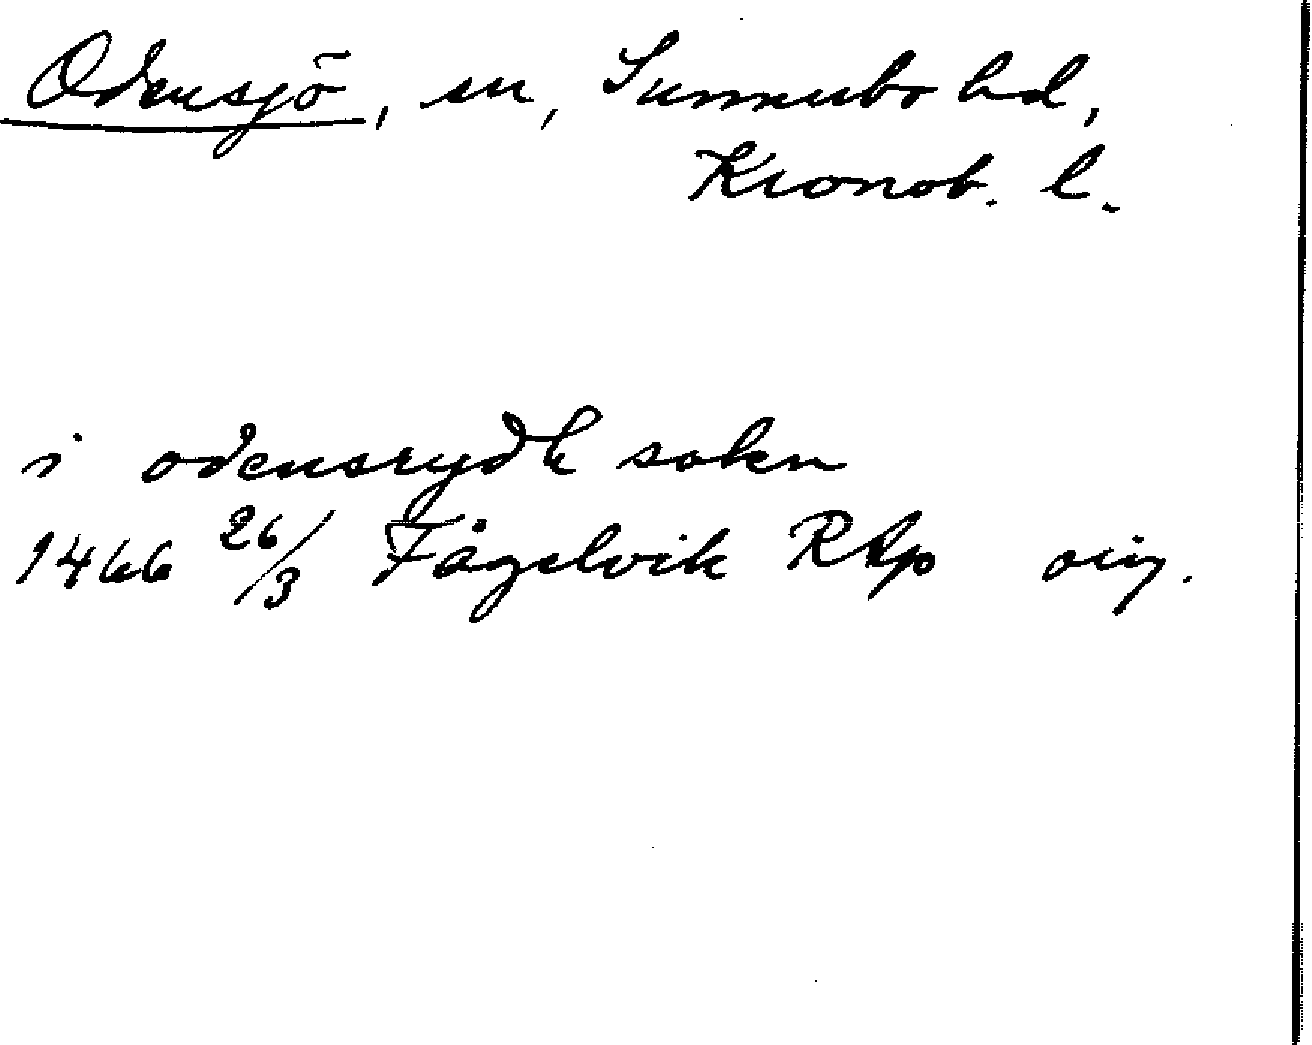 Odensjö, sn, Sunnerbo hd,
Kronob. l.
i odensrydh sokn
1466 26/3 Fågelvik RAp orig.